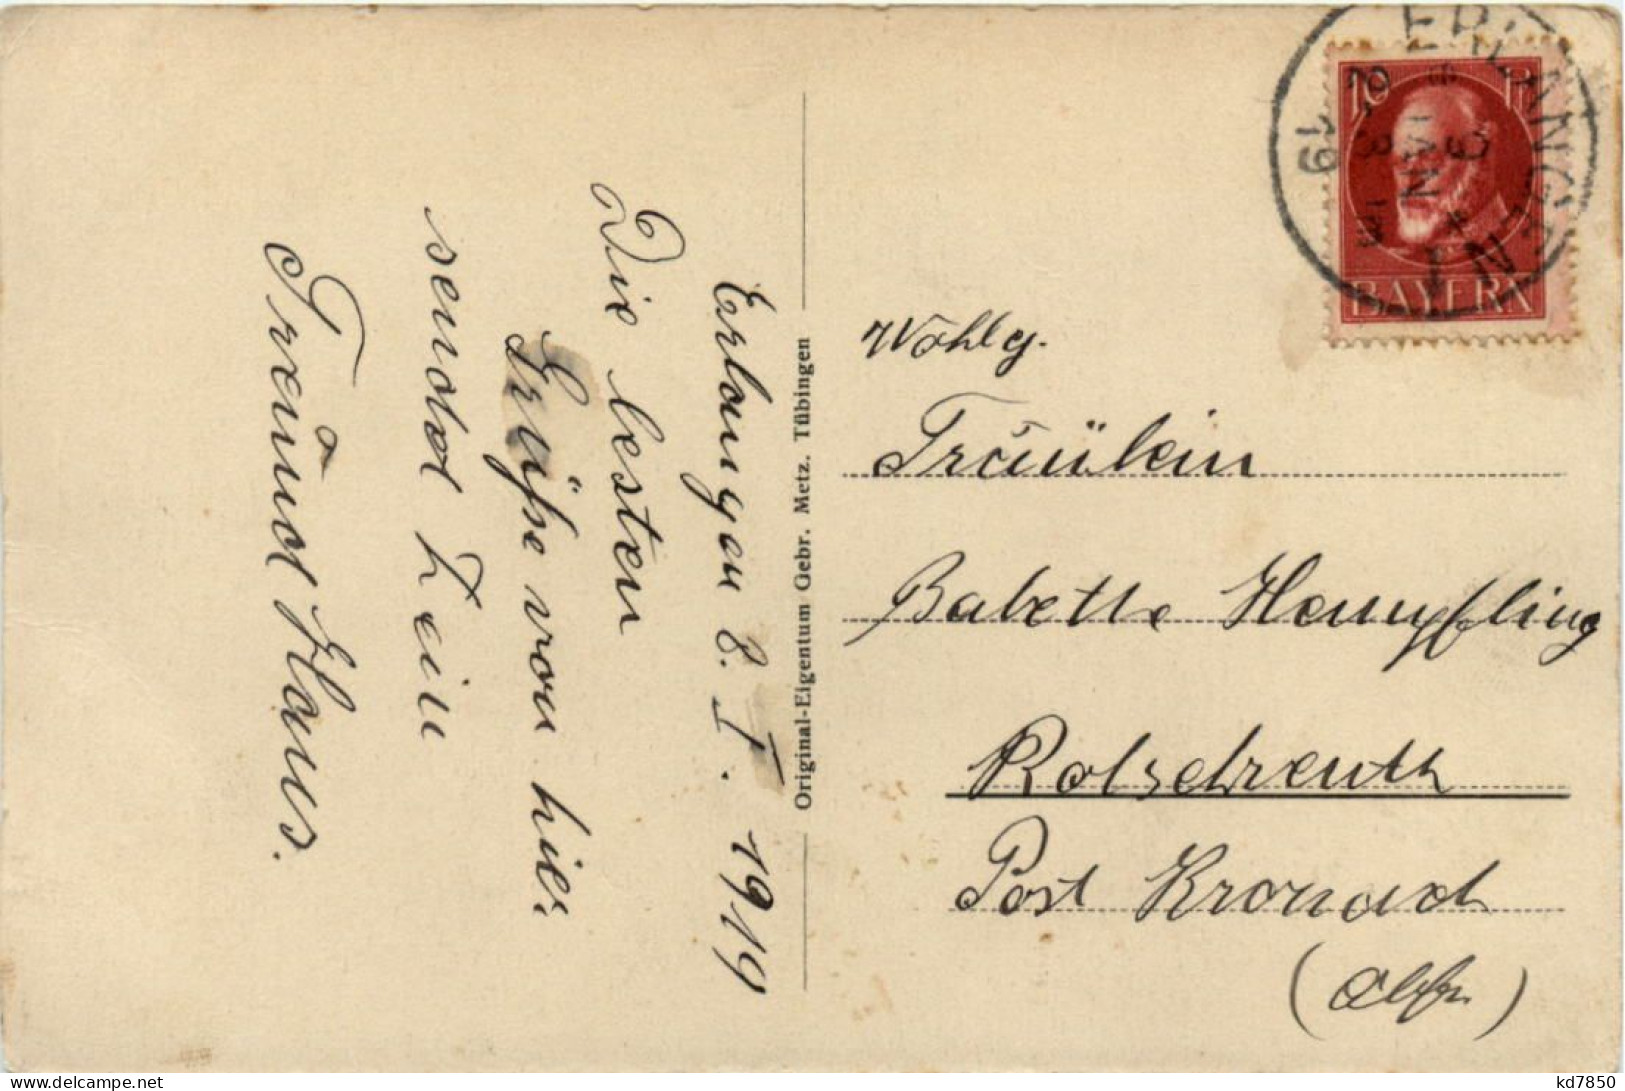 Erlangen 8. I. 1919
Die besten
Grüße von hier
sendet Dein
Freund Hans.
Original-Eigentum Gebr. Metz. Tübingen
ERLANGEN
3 JAN
19
10 Pf
BAYERN
Wohlg.
Fräulein
Babette Hempfling
Rotschreuth
Post Kronach
kd7850